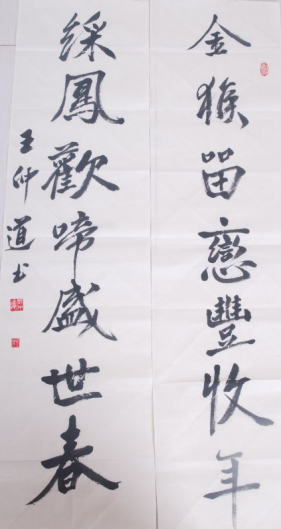 金猴留戀豐收年
綵鳳歡啼盛世春
王仲道书